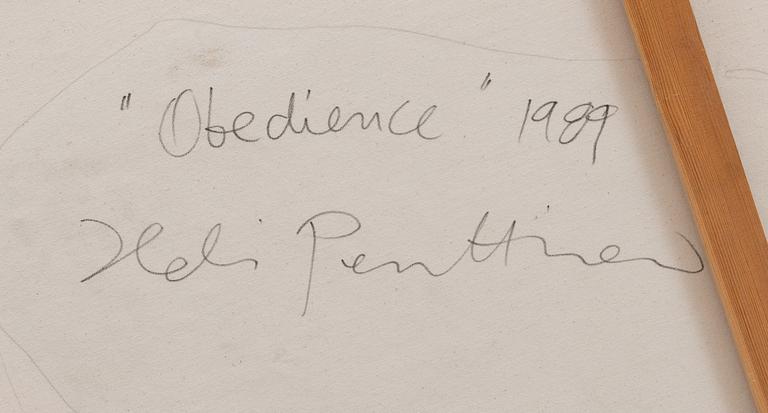 "Obedience" 1989
Heli Penttinen